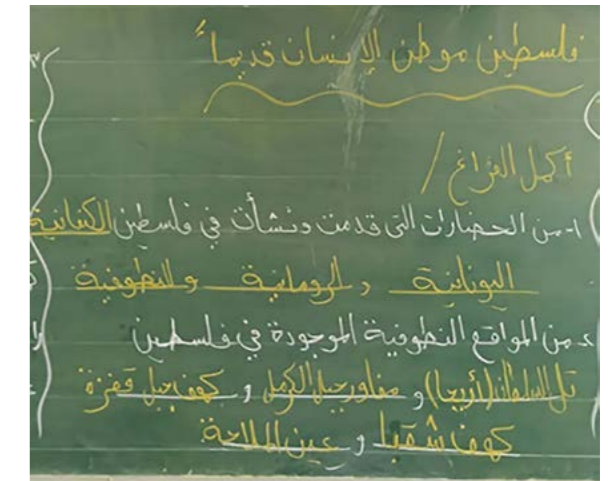 فلسطين موطن الإنسان قديماً
أكمل الفراغ /
١- من الحضارات التي قدمت ونشأت في فلسطين الكنعانية
اليونانية و الرومانية و النطوفية
٢- من المواقع النطوفية الموجودة في فلسطين
تل السلطان (أريحا) و مغاور جبل الكرمل و كهف جبل قفزة
كهف شقبا و عين الملاحة